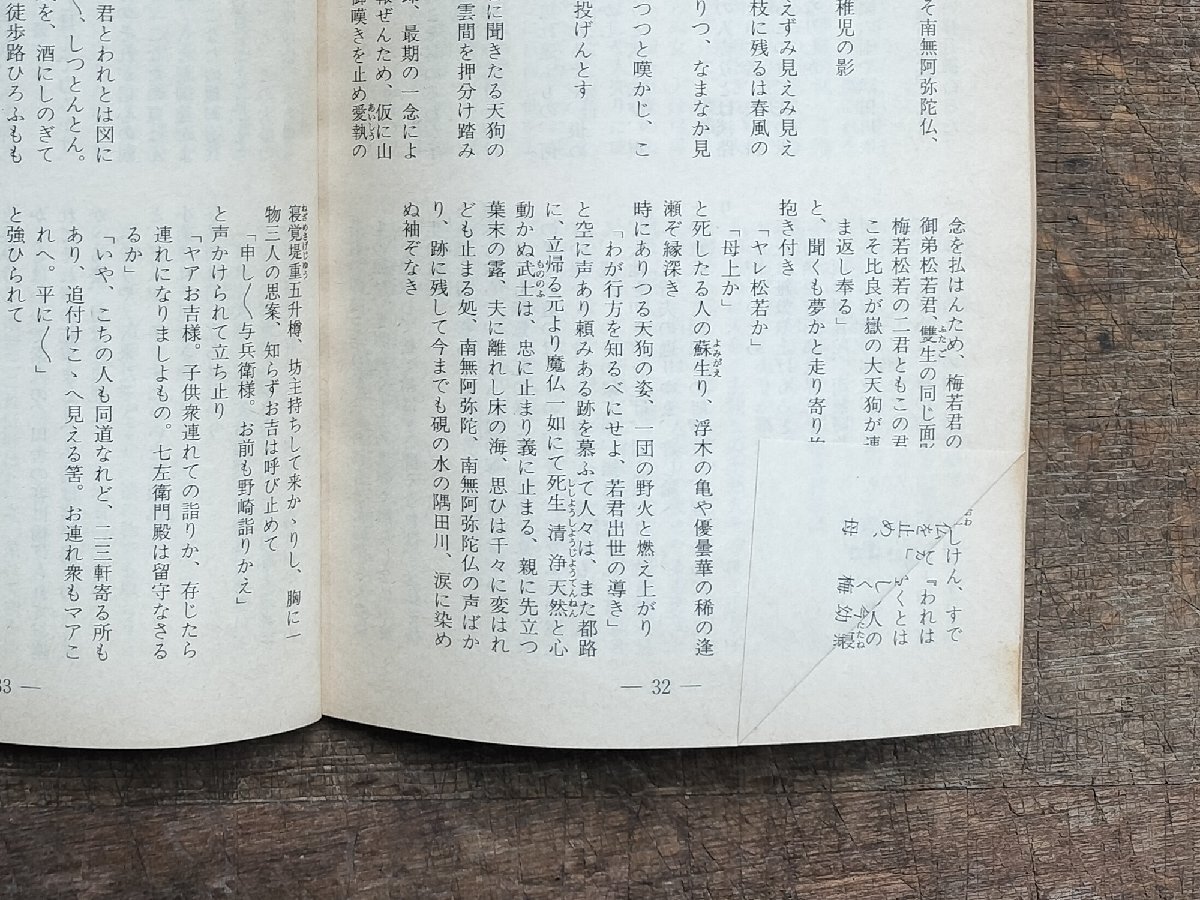 そ南無阿弥陀仏、
稚児の影
えずみ見えみ見え
枝に残るは春風の
りつ、なまなか見
つつと嘆かじ、こ
投げんとす
に聞きたる天狗の
雲間を押分け踏み
、最期の一念によ
報ぜんため、仮に山
御嘆きを止め愛執の
念を払はんため、梅若君の
御弟松若君、雙生の同じ面影
梅若松若の二君ともこの君
こそ比良が嶽の大天狗が連
ま返し奉る」
と、聞くも夢かと走り寄り
抱き付き
「ヤレ松若か」
「母上か」
と死したる人の蘇生り、浮木の亀や優曇華の稀の逢
瀬ぞ縁深き
時にありつる天狗の姿、一団の野火と燃え上がり
「わが行方を知るべにせよ、若君出世の導き」
と空に声あり頼みある跡を慕ふて人々は、また都路
に、立帰る元より魔仏一如にて死生清浄天然と心
動かぬ武士は、忠に止まり義に止まる、親に先立つ
葉末の露、夫に離れし床の海、思ひは千々に変はれ
ども止まる処、南無阿弥陀、南無阿弥陀仏の声ばか
り、跡に残して今までも硯の水の隅田川、涙に染め
ぬ袖ぞなき
しけん、すで
て『われは
くとは
人の
— 32 —
君とわれとは図に
〱、しつとんとん。
を、酒にしのぎて
徒歩路ひろふもも
寝覚堤重五升樽、坊主持ちして来かゝりし、胸に一
物三人の思案、知らずお吉は呼び止めて
「申し〱与兵衛様。お前も野崎詣りかえ」
と声かけられて立ち止り
「ヤアお吉様。子供衆連れての詣りか、存じたら
連れになりましよもの。七左衛門殿は留守なさる
るか」
「いや、こちの人も同道なれど、二三軒寄る所も
あり、追付けこゝへ見える筈。お連れ衆もマアこ
れへ。平に〱」
と強ひられて
33 —